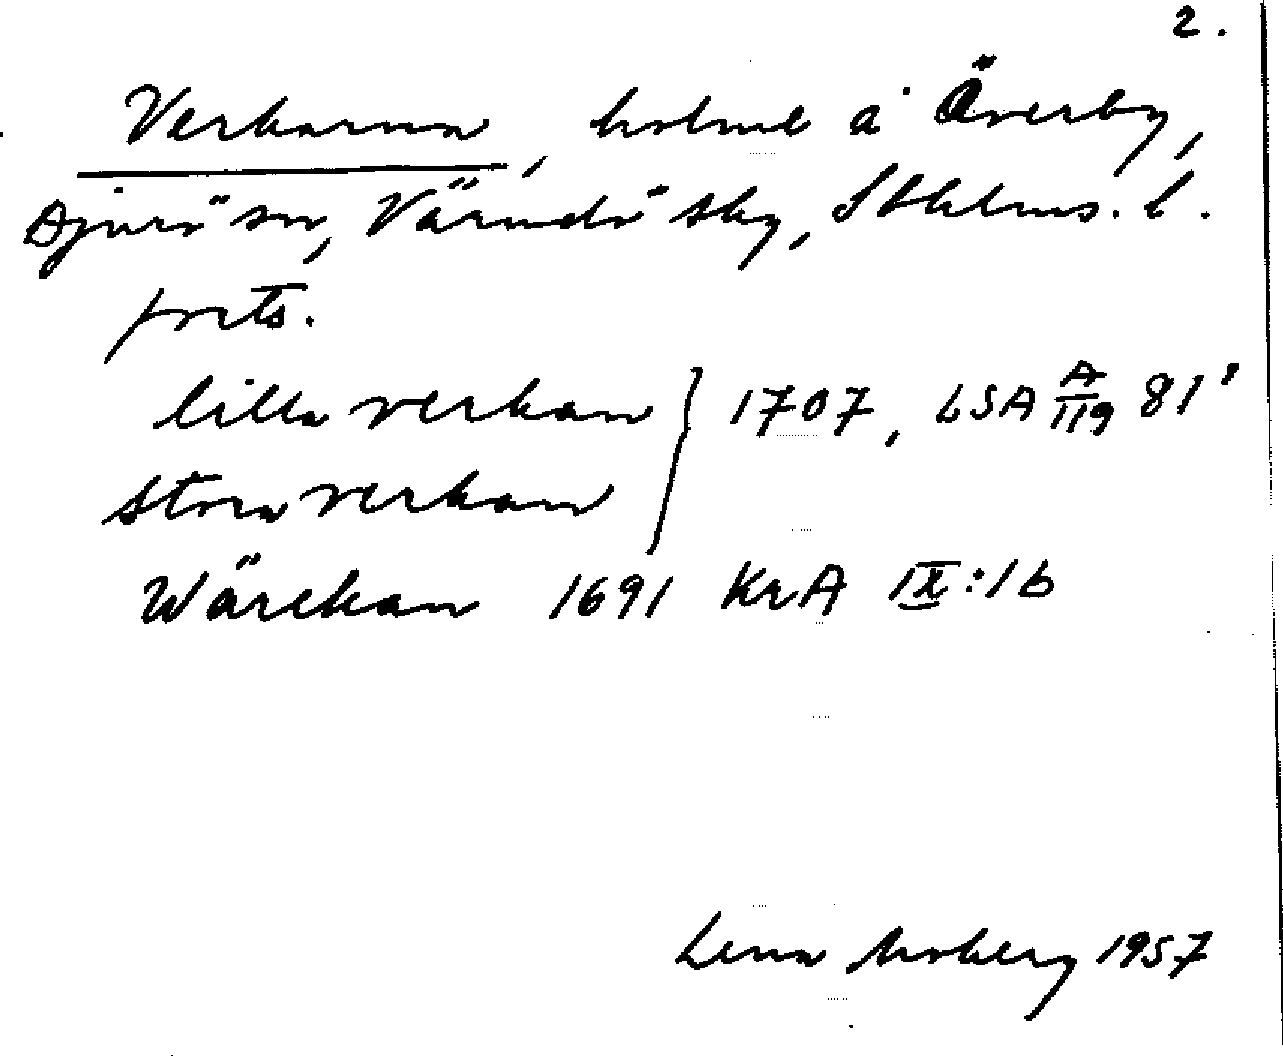 2.
Verkarna, holme å Överby,
Djurö sn, Värmdö skg, Sthlms. l.
forts.
lilla verkan } 1707, LSA A/119 81'
Stora verkan
Wärekan 1691 KrA IX:16
Lena Moberg 1957